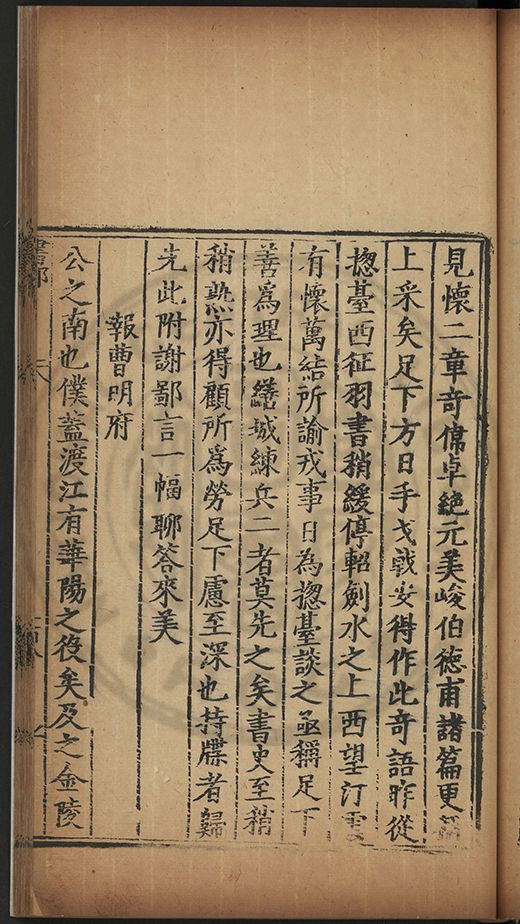 見懷二章奇偉卓絕元美峻伯德甫諸篇更稱
上乘矣足下方日手戈戟安得作此奇語昨從
揔臺西征羽書稍緩停軺劍水之上西望汀雲
有懷萬結所諭戎事日為揔臺談之亟稱足下
善爲理也繕城練兵二者莫先之矣書史至稍
稍熟亦得顧所爲勞足下慮至深也持牒者歸
先此附謝鄙言一幅聊答來美
報曹明府
公之南也僕蓋渡江有華陽之役矣及之金陵